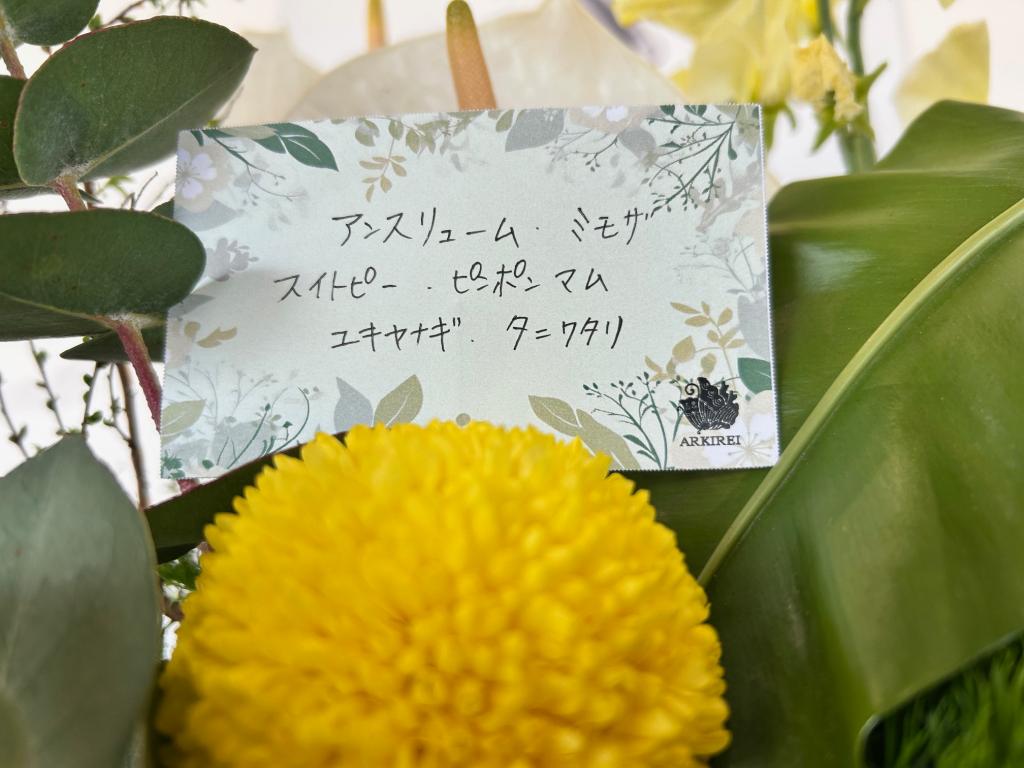 アンスリューム・ミモザ
スイトピー・ピンポンマム
ユキヤナギ・タニワタリ
ARKIREI